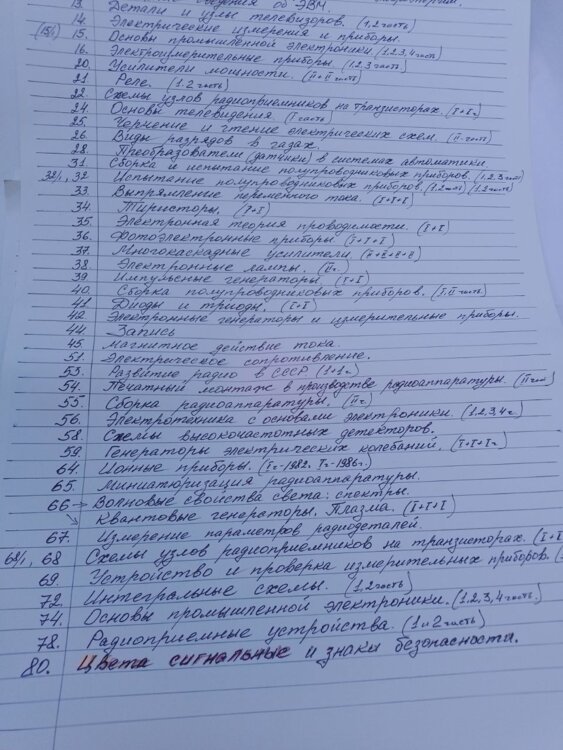 13. сведения об ЭВМ.
14. Детали и узлы телевизоров. (1,2 часть)
(15/1) 15. Электрические измерения и приборы.
16. Основы промышленной электроники (1,2,3,4 часть)
20. Электроизмерительные приборы (1,2,3 часть)
21. Усилители мощности. (II и II часть)
22. Реле. (1.2 часть)
24. Схемы узлов радиоприемников на транзисторах. (I+I ч.)
25. Основы телевидения (I часть)
26. Черчение и чтение электрических схем. (II-часть)
28. Виды разрядов в газах.
31. Преобразователи (датчики) в системах автоматики
32/1, 32 Сборка и испытание полупроводниковых приборов. (1,2,3 часть)
33. Испытение полупроводниковых приборов, (1.2 часть) (1.2 часть)
34. Выпрямление переменного тока. (I+I+I)
35. Тиристоры, (I+I)
36. Электронная теория проводимости. (I+I)
37. Фотоэлектронные приборы (I+I+I)
38. Многокаскадные усилители.
39. Электронные лампы. (II ч.)
40. Импульсные генераторы (I+I)
41. Сборка полупроводниковых приборов. (I, II часть)
42. Диоды и триоды. (I+I)
44. Электронные генераторы и измерительные приборы.
45. Запись
51. Магнитное действие тока.
53. Электрическое сопротивление.
54. Развитие радио в СССР (1+1 ч.)
55. Печатный монтаж в производстве радиоаппаратуры. (II часть)
56. Сборка радиоаппаратуры. (II ч.)
58. Электротехника с основами электроники. (1.2,3,4 ч.)
59. Схемы высокочастотных детекторов.
64. Генераторы электрических колебаний. (I+I+I ч.)
65. Ионные приборы. (I ч-1982. I ч-1986 г.)
66 → Миниатюризация радиоаппаратуры.
Волновые свойства света: спектры.
67. Квантовые генераторы. Плазма. (I+I+I)
68/1, 68 Измерение параметров радиодеталей.
69. Схемы узлов радиоприемников на транзисторах. (I+I
72. Устройство и проверка измерительных приборов.
74. Интегральные схемы. (1,2 часть)
78. Основы промышленной электроники. (1,2,3,4 часть.)
80. Радиоприемные устройства. (1 и 2 часть)
Цвета сигнальные и знаки безопасности.